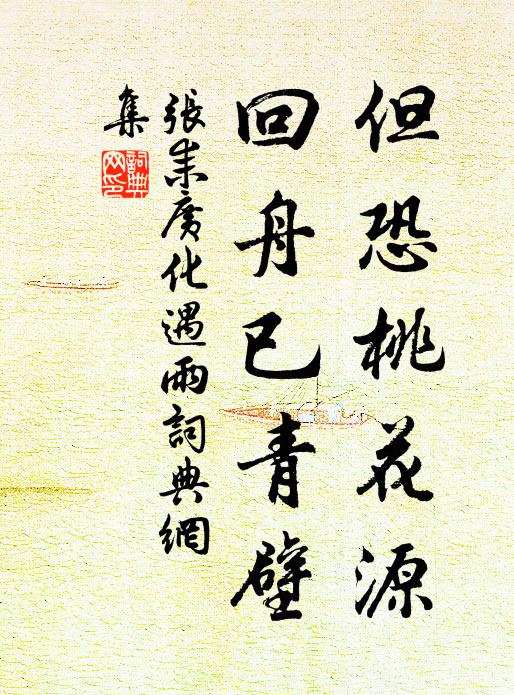 但恐桃花源
回舟已青壁
張耒廣化遇雨詞典網
集
詞典
网印